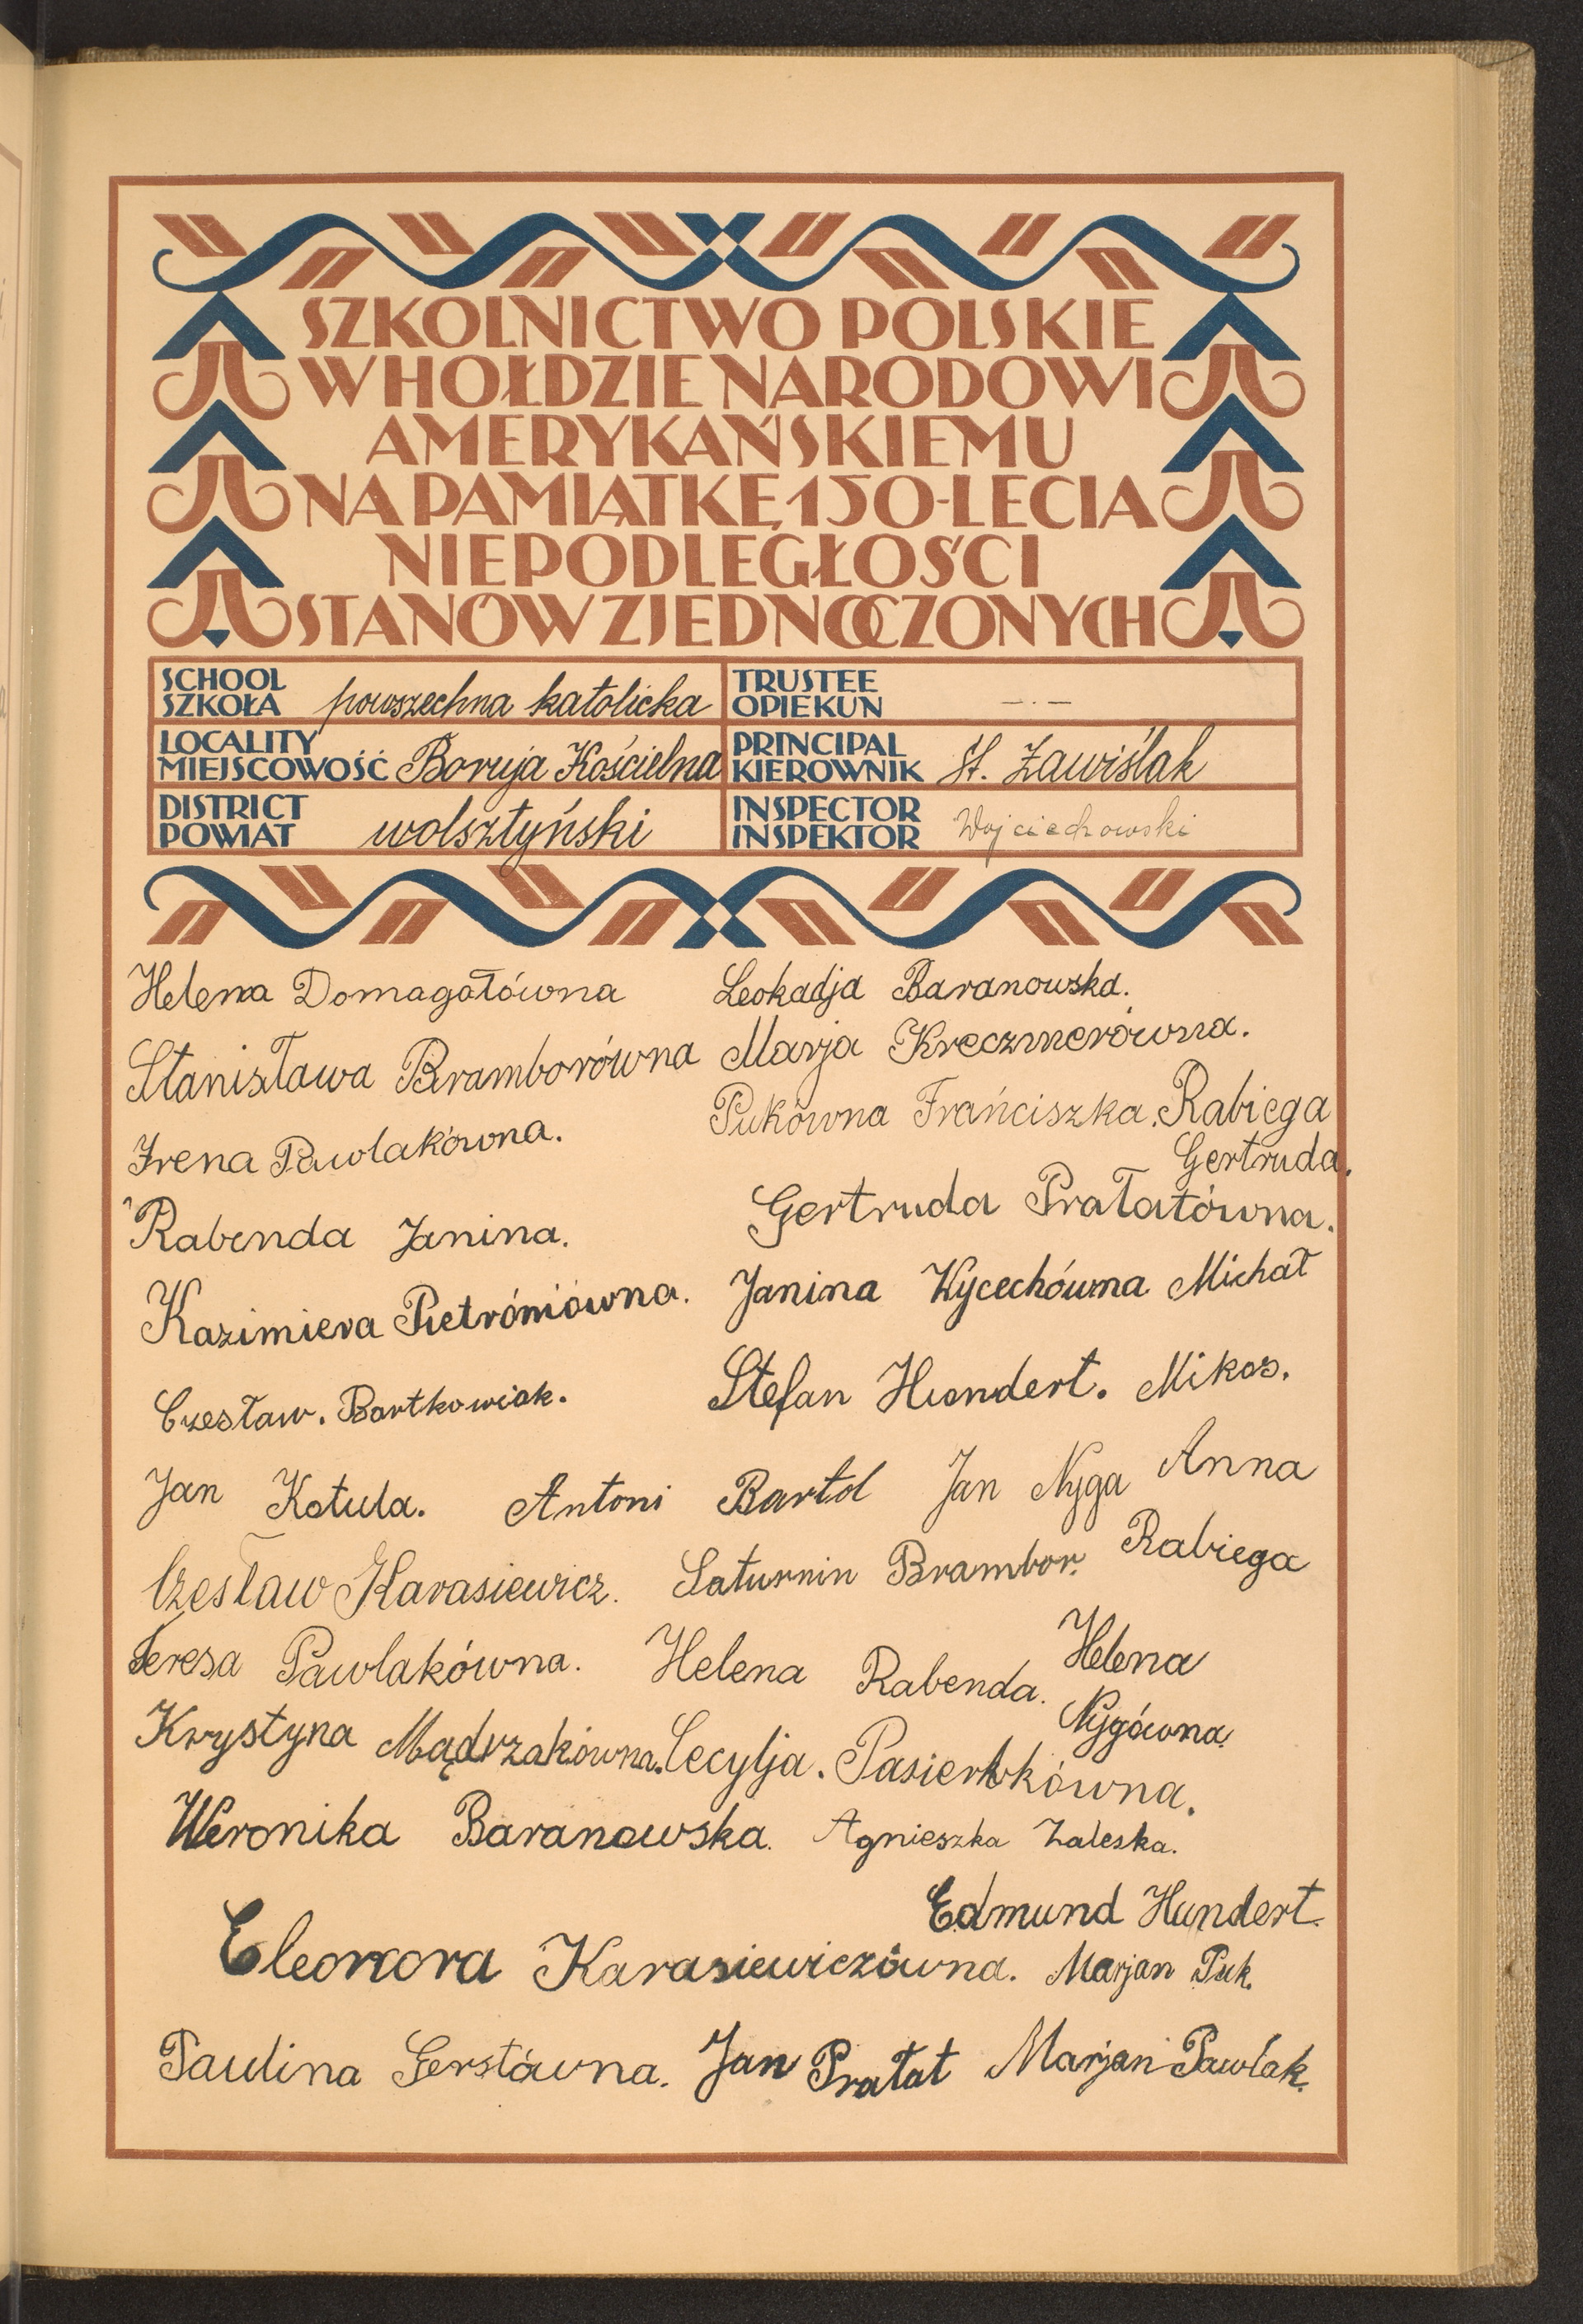 SZKOLNICTWO POLSKIE
W HOŁDZIE NARODOWI
AMERYKAŃSKIEMU
NA PAMIĄTKĘ 150-LECIA
NIEPODLEGŁOŚCI
STANÓW ZJEDNOCZONYCH
SCHOOL
SZKOŁA powszechna katolicka
TRUSTEE
OPIEKUN —.—
LOCALITY
MIEJSCOWOŚĆ Boruja Kościelna
PRINCIPAL
KIEROWNIK St. Zawiślak
DISTRICT
POWIAT wolsztyński
INSPECTOR
INSPEKTOR Wojciechowski
Helena Domagałówna Leokadja Baranowska.
Stanisława Bramborówna Marja Kreczmerówna.
Pukówna Frańciszka. Rabiega
Gertruda.
Irena Pawlakówna.
Rabenda Janina. Gertruda Prałatówna.
Kazimiera Pietróniówna. Janina Wycechówna Michał
Czesław. Bartkowiak. Stefan Hundert. Mikos.
Jan Kotula. Antoni Bartol Jan Nyga Anna
Czesław Karasiewicz. Saturnin Brambor. Rabiega
Teresa Pawlakówna. Helena Rabenda. Helena
Nygówna.
Krystyna Mądrzakówna. Cecylja. Pasierbkówna.
Weronika Baranowska. Agnieszka Zaleska.
Edmund Hundert.
Eleonora Karasiewiczówna. Marjan Puk.
Paulina Gerstówna. Jan Prałat Marjan Pawlak.